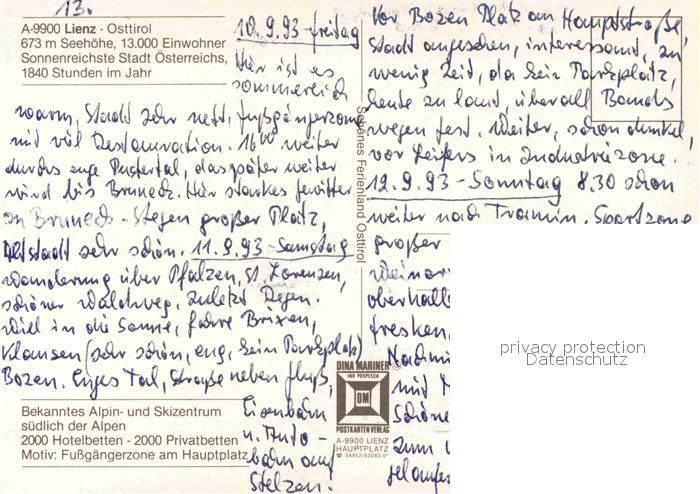 13.
A-9900 Lienz - Osttirol
673 m Seehöhe, 13.000 Einwohner
Sonnenreichste Stadt Österreichs,
1840 Stunden im Jahr
10.9.93 - freitag
Hier ist es
sommerlich
warm, Stadt sehr nett, fußgängerzone
mit viel Restauration. 16⁰⁰ weiter
durchs enge Pustertal, das später weiter
wird bis Bruneck. Hier starkes Gewitter
in Bruneck - Stegen großer Platz,
Altstadt sehr schön. 11.9.93 - Samstag
Wanderung über Pfalzen, St. Lorenzen,
schöner Waldweg. Zuletzt Regen.
Will in die Sonne, fahre Brixen,
Klausen (sehr schön, eng, kein Parkplatz)
Bozen. Enges Tal, Straße neben Fluß,
Eisenbahn
u. Auto-
bahn auf
Stelzen.
Bekanntes Alpin- und Skizentrum
südlich der Alpen
2000 Hotelbetten - 2000 Privatbetten
Motiv: Fußgängerzone am Hauptplatz
Schönes Ferienland Osttirol
DINA MARINER
INH POSPESCH
DM
POSTKARTEN VERLAG
A-9900 LIENZ
HAUPTPLATZ
☎ 04852/62083-0*
Vor Bozen Platz an Hauptstraße,
Stadt angesehen, interessant, zu
wenig Zeit, da kein Parkplatz,
heute zu laut, überall Bands
wegen fest. Weiter, schon dunkel,
vor Leifers in Industriezone.
12.9.93 - Sonntag 8.30 schon
weiter nach Tramin. Sportzone
großer
oberhalb
fresken
mit
Schöne
zum
privacy protection
Datenschutz